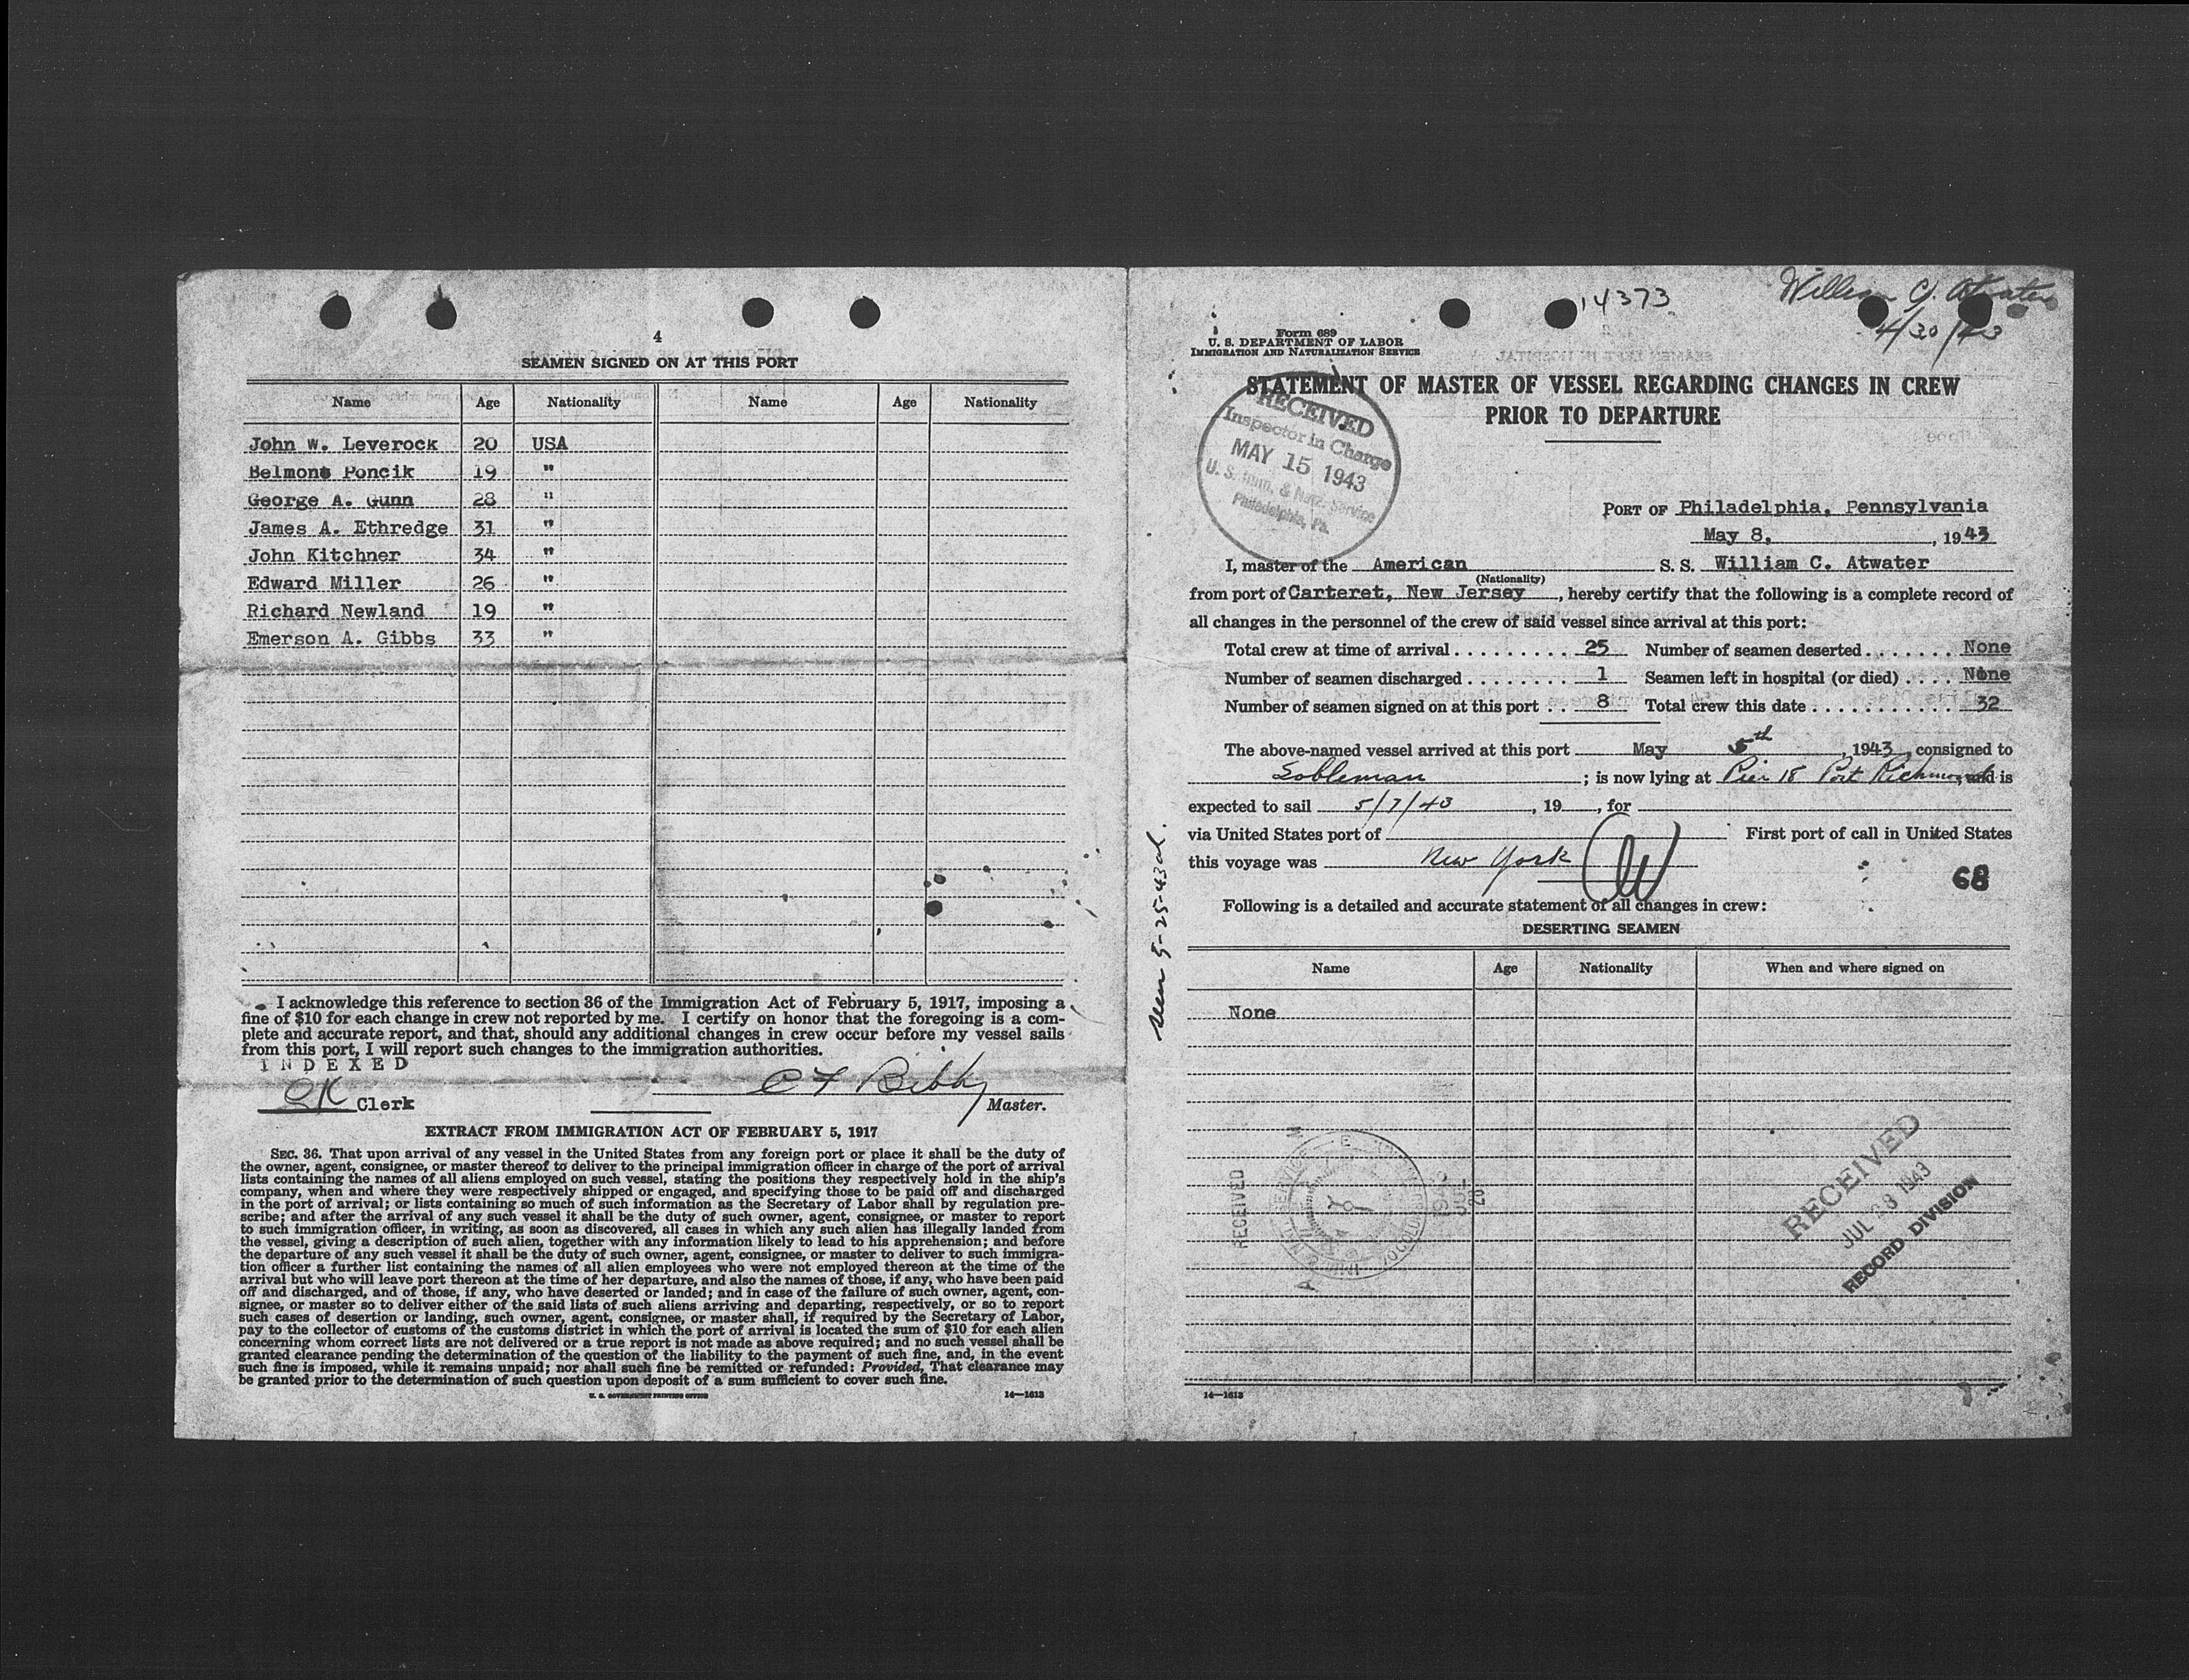 4
SEAMEN SIGNED ON AT THIS PORT
Name Age Nationality Name Age Nationality
John W. Leverock 20 USA
Belmont Poncik 19 "
George A. Gunn 28 "
James A. Ethredge 31 "
John Kitchner 34 "
Edward Miller 26 "
Richard Newland 19 "
Emerson A. Gibbs 33 "
I acknowledge this reference to section 36 of the Immigration Act of February 5, 1917, imposing a
fine of $10 for each change in crew not reported by me. I certify on honor that the foregoing is a com-
plete and accurate report, and that, should any additional changes in crew occur before my vessel sails
from this port, I will report such changes to the immigration authorities.
INDEXED
Clerk
C F Bibby
Master.
EXTRACT FROM IMMIGRATION ACT OF FEBRUARY 5, 1917
SEC. 36. That upon arrival of any vessel in the United States from any foreign port or place it shall be the duty of
the owner, agent, consignee, or master thereof to deliver to the principal immigration officer in charge of the port of arrival
lists containing the names of all aliens employed on such vessel, stating the positions they respectively hold in the ship's
company, when and where they were respectively shipped or engaged, and specifying those to be paid off and discharged
in the port of arrival; or lists containing so much of such information as the Secretary of Labor shall by regulation pre-
scribe; and after the arrival of any such vessel it shall be the duty of such owner, agent, consignee, or master to report
to such immigration officer, in writing, as soon as discovered, all cases in which any such alien has illegally landed from
the vessel, giving a description of such alien, together with any information likely to lead to his apprehension; and before
the departure of any such vessel it shall be the duty of such owner, agent, consignee, or master to deliver to such immigra-
tion officer a further list containing the names of all alien employees who were not employed thereon at the time of the
arrival but who will leave port thereon at the time of her departure, and also the names of those, if any, who have been paid
off and discharged, and of those, if any, who have deserted or landed; and in case of the failure of such owner, agent, con-
signee, or master so to deliver either of the said lists of such aliens arriving and departing, respectively, or so to report
such cases of desertion or landing, such owner, agent, consignee, or master shall, if required by the Secretary of Labor,
pay to the collector of customs of the customs district in which the port of arrival is located the sum of $10 for each alien
concerning whom correct lists are not delivered or a true report is not made as above required; and no such vessel shall be
granted clearance pending the determination of the question of the liability to the payment of such fine, and, in the event
such fine is imposed, while it remains unpaid; nor shall such fine be remitted or refunded: Provided, That clearance may
be granted prior to the determination of such question upon deposit of a sum sufficient to cover such fine.
U. S. GOVERNMENT PRINTING OFFICE 14—1613
14373
William C. Atwater
4/30/43
Form 689
U. S. DEPARTMENT OF LABOR
IMMIGRATION AND NATURALIZATION SERVICE
STATEMENT OF MASTER OF VESSEL REGARDING CHANGES IN CREW
PRIOR TO DEPARTURE
RECEIVED
Inspector in Charge
MAY 15 1943
U. S. Imm. & Natz. Service
Philadelphia, Pa.
PORT OF Philadelphia, Pennsylvania
May 8, , 1943
I, master of the American S. S. William C. Atwater
(Nationality)
from port of Carteret, New Jersey , hereby certify that the following is a complete record of
all changes in the personnel of the crew of said vessel since arrival at this port:
Total crew at time of arrival 25 Number of seamen deserted None
Number of seamen discharged 1 Seamen left in hospital (or died) None
Number of seamen signed on at this port 8 Total crew this date 32
The above-named vessel arrived at this port May 5th , 1943, consigned to
Sobleman ; is now lying at Pier 18 Port Richmond, and is
expected to sail 5/7/43 , 19 , for
via United States port of First port of call in United States
this voyage was New York
68
Following is a detailed and accurate statement of all changes in crew:
seen 5-25-43
DESERTING SEAMEN
Name Age Nationality When and where signed on
None
RECEIVED
RECEIVED
JUL 28 1943
RECORD DIVISION
14—1613